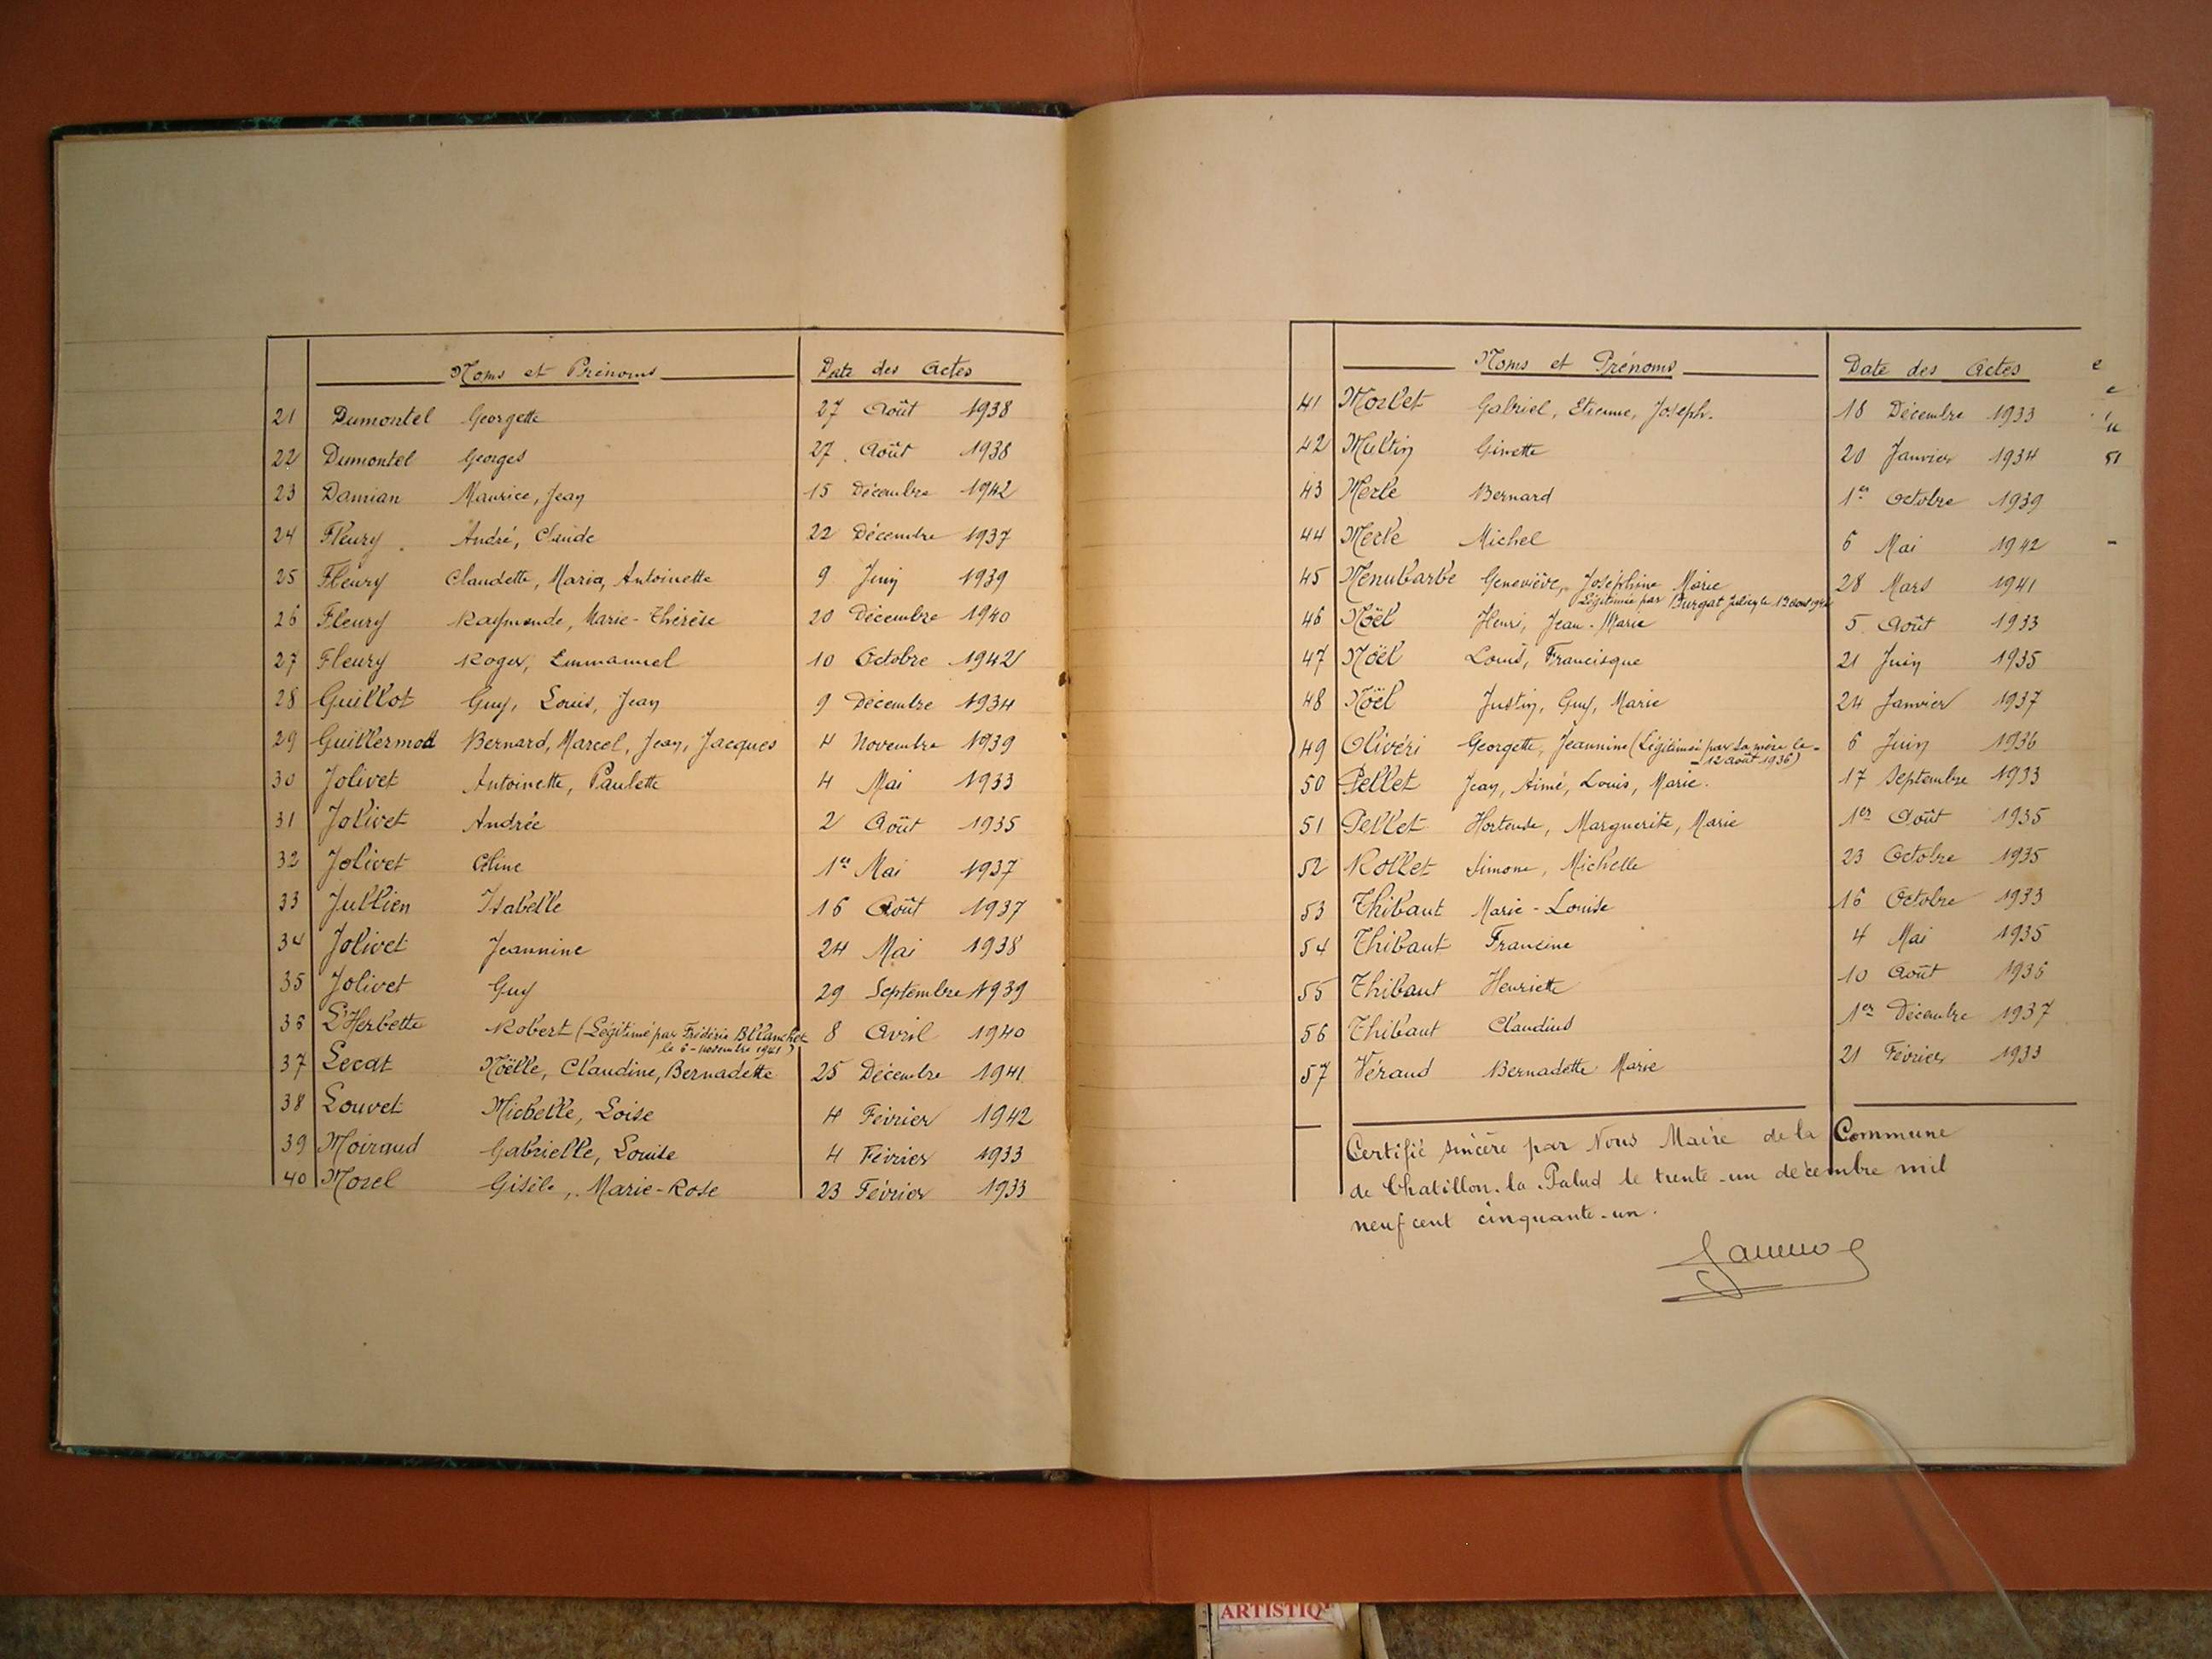 Noms et Prénoms Date des Actes
21 Dumontel Georgette 27 Août 1938
22 Dumontel Georges 27 Août 1938
23 Damian Maurice, Jean 15 Décembre 1942
24 Fleury André, Claude 22 Décembre 1937
25 Fleury Claudette, Maria, Antoinette 9 Juin 1939
26 Fleury Raymonde, Marie-Thérèse 20 Décembre 1940
27 Fleury Roger, Emmanuel 10 Octobre 1942
28 Guillot Guy, Louis, Jean 9 Décembre 1934
29 Guillermod Bernard, Marcel, Jean, Jacques 4 Novembre 1939
30 Jolivet Antoinette, Paulette 4 Mai 1933
31 Jolivet Andrée 2 Août 1935
32 Jolivet Céline 1er Mai 1937
33 Jullien Isabelle 16 Août 1937
34 Jolivet Jeannine 24 Mai 1938
35 Jolivet Guy 29 Septembre 1939
36 L'Herbette Robert (Légitimé par Frédéric Blanchet 8 Avril 1940
le 6 - novembre 1941)
37 Lecat Noëlle, Claudine, Bernadette 25 Décembre 1941
38 Louvet Michelle, Loise 4 Février 1942
39 Moiraud Gabrielle, Louise 4 Février 1933
40 Morel Gisèle, Marie-Rose 23 Février 1933
Noms et Prénoms Date des Actes
41 Morlet Gabriel, Etienne, Joseph. 18 Décembre 1933
42 Multin Ginette 20 Janvier 1934
43 Merle Bernard 1er Octobre 1939
44 Merle Michel 6 Mai 1942
45 Menubarbe Geneviève, Joséphine Marie 28 Mars 1941
Légitimée par Burgat
46 Noël Henri, Jean-Marie 5 Août 1933
47 Noël Louis, Francisque 21 Juin 1935
48 Noël Justin, Guy, Marie 24 Janvier 1937
49 Olivéri Georgette, Jeannine (Légitimée par sa mère le - 6 Juin 1936
12 août 1936)
50 Pellet Jean, Aimé, Louis, Marie. 17 Septembre 1933
51 Pellet Hortense, Marguerite, Marie 1er Août 1935
52 Rollet Simone, Michelle 23 Octobre 1935
53 Thibaut Marie-Louise 16 Octobre 1933
54 Thibaut Francine 4 Mai 1935
55 Thibaut Henriette 10 Août 1936
56 Thibaut Claudius 1er Décembre 1937
57 Véraud Bernadette Marie 21 Février 1933
Certifié sincère par Nous Maire de la Commune
de Chatillon-la-Palud le trente-un décembre mil
neuf cent cinquante-un.
ARTISTIQ